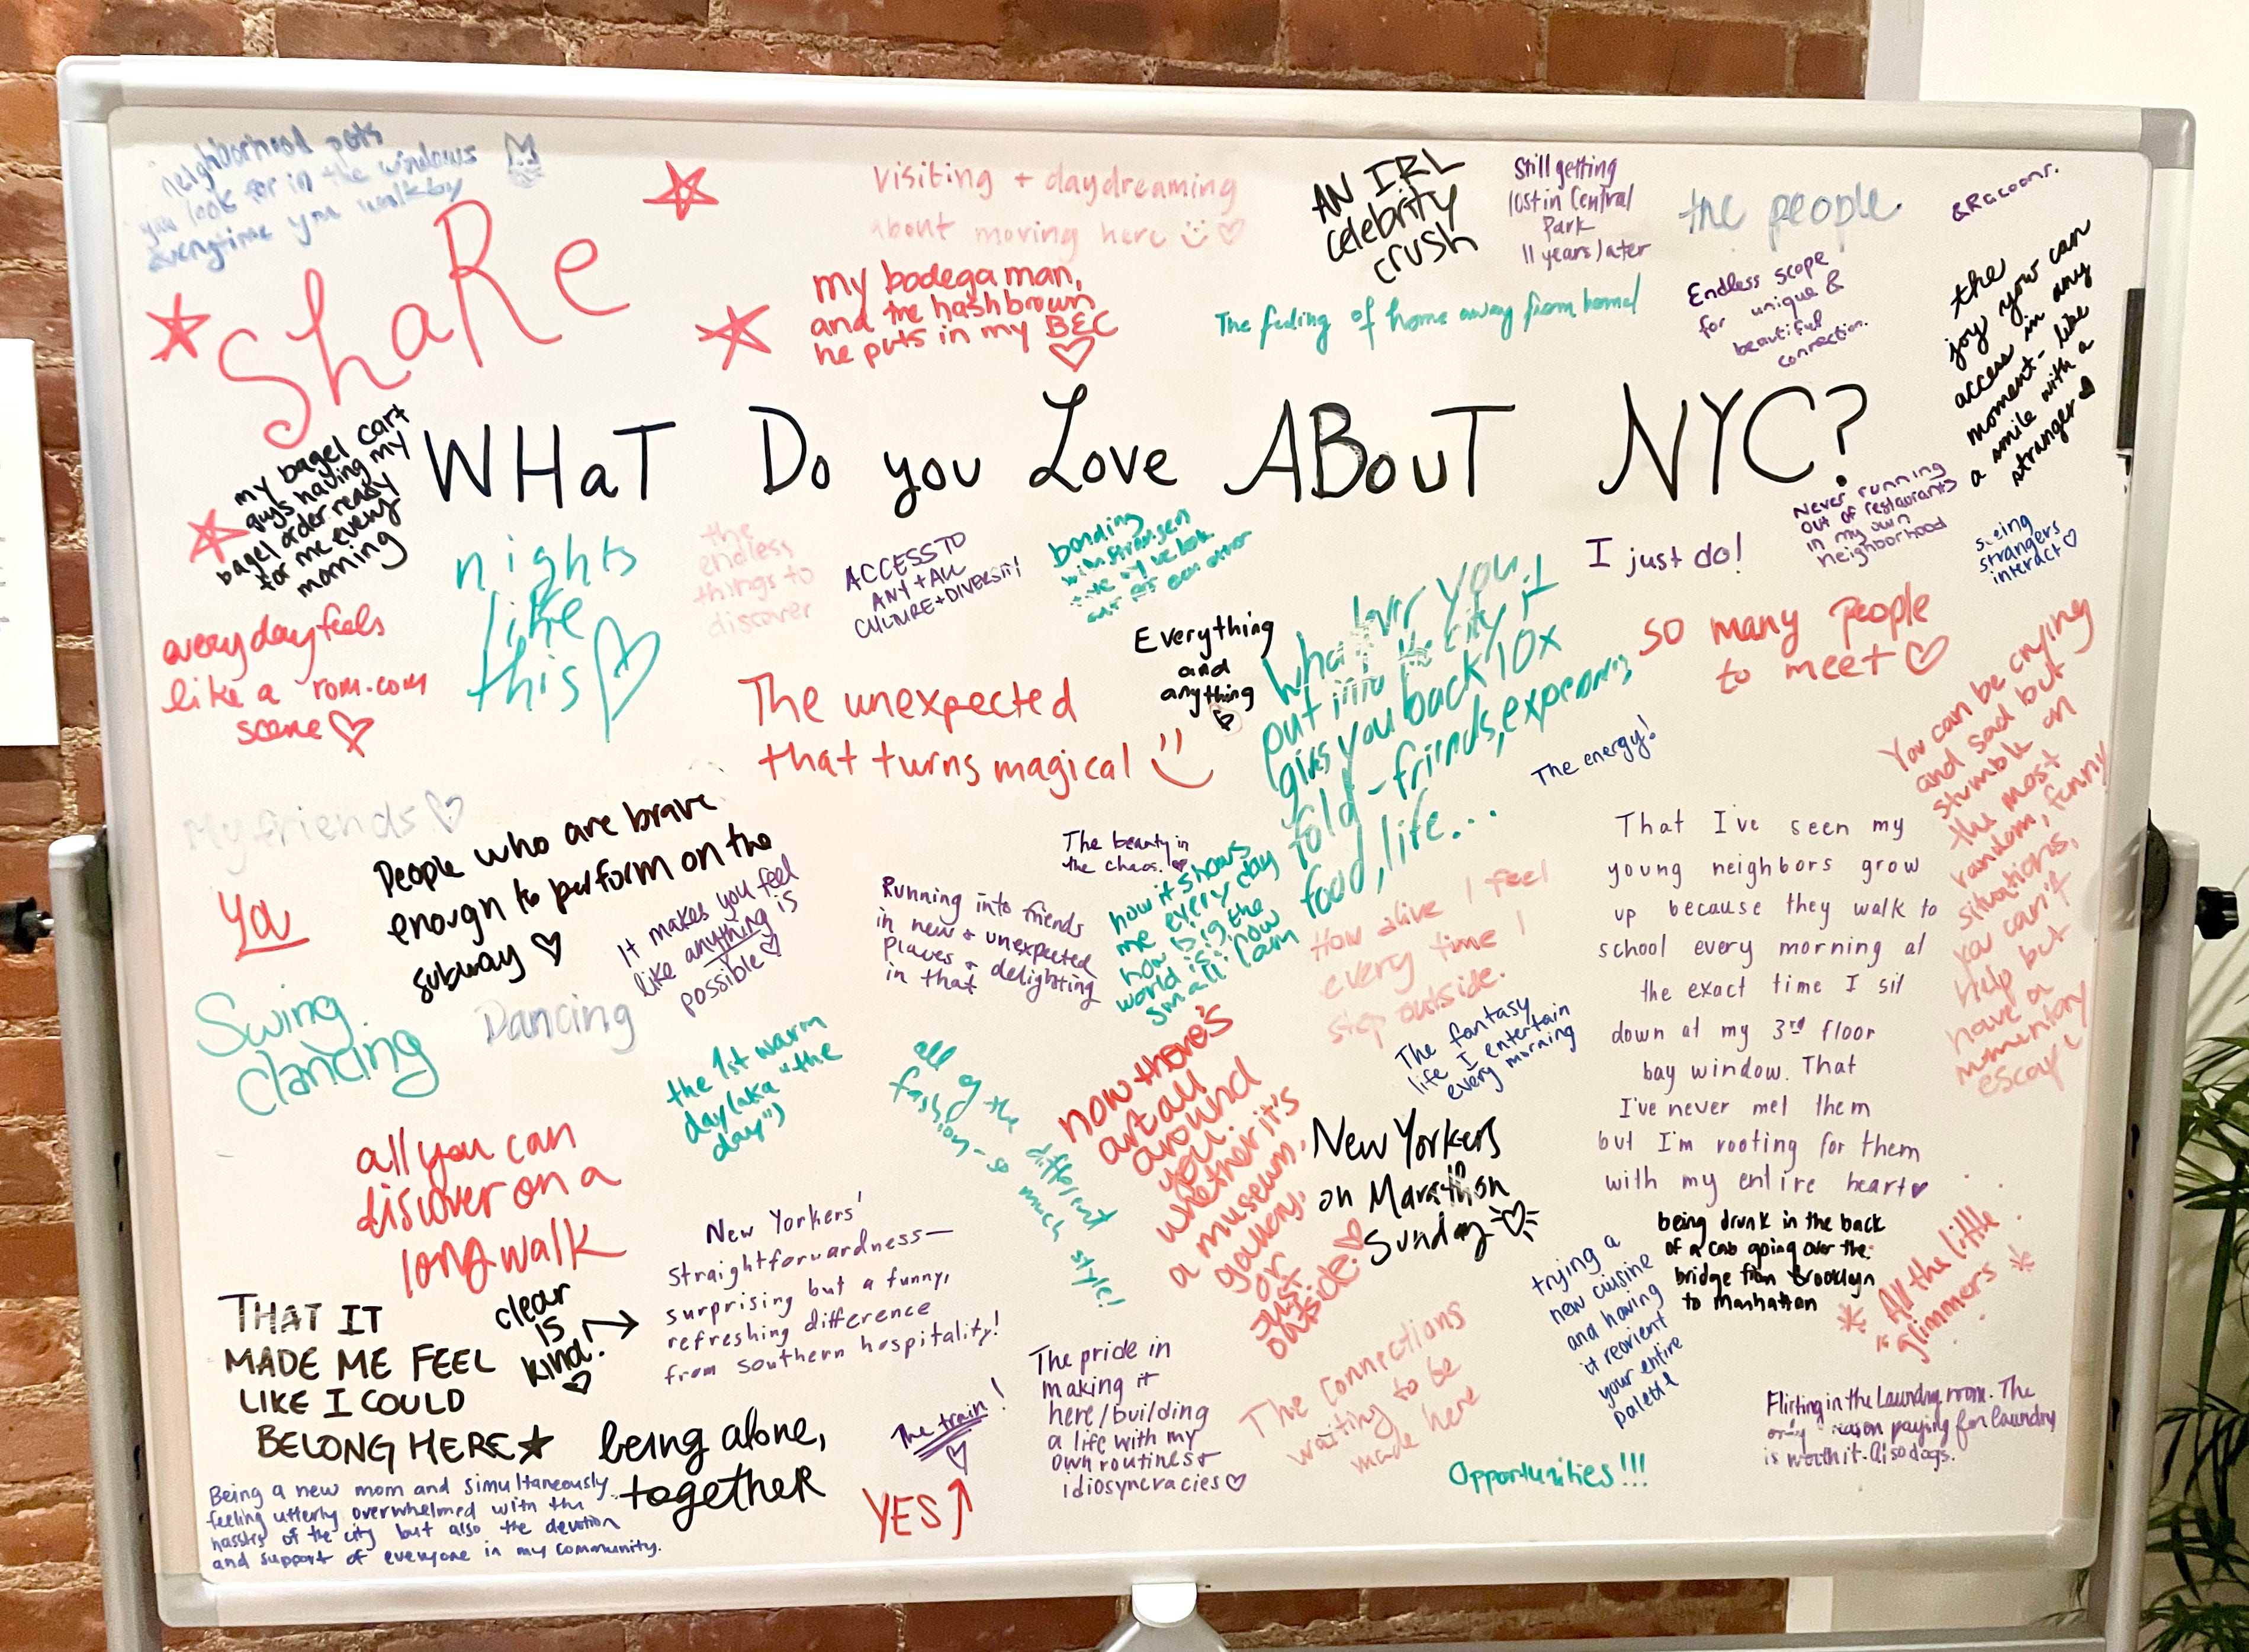 neighborhood pets
you look for in the windows
everytime you walk by
ShaRe
visiting + daydreaming
about moving here
my bodega man,
and the hashbrown
he puts in my BEC
AN IRL
celebrity
crush
Still getting
lost in Central
Park
11 years later
the people
& Racoons.
The feeling of home away from home!
Endless scope
for unique &
beautiful
connection.
the
joy you can
access in any
moment - like
a smile with a
stranger
WHaT Do you Love ABouT NYC?
my bagel cart
guys having my
bagel order ready
for me every
morning
nights
like
this
the
endless
things to
discover
ACCESS TO
ANY + ALL
CULTURE + DIVERSITY!
bonding
with strangers
I just do!
Never running
out of restaurants
in my own
neighborhood
seeing
strangers
interact
every day feels
like a rom.com
scene
The unexpected
that turns magical
Everything
and
anything
whatever you
put into the city, it
gives you back 10x
fold - friends,
food, life...
so many people
to meet
The energy!
You can be crying
and sad but
stumble on
the most
random, funny
situations,
you can't
help but
have a
momentary
escape
My friends
People who are brave
enough to perform on the
subway
you
It makes you feel
like anything is
possible
The beauty in
the chaos.
Running into friends
in new + unexpected
places + delighting
in that
how it shows
me every day
how big the
world is: how
small I am
How alive I feel
every time I
step outside.
The fantasy
life I entertain
every morning
That I've seen my
young neighbors grow
up because they walk to
school every morning at
the exact time I sit
down at my 3rd floor
bay window. That
I've never met them
but I'm rooting for them
with my entire heart
Swing
dancing
Dancing
the 1st warm
day (aka "the
day")
all of the different
fashion - so much style!
now there's
art all
around
you.
whether it's
a museum,
gallery,
or
just
outside.
New Yorkers
on Marathon
Sunday
all you can
discover on a
long walk
New Yorkers'
straightforwardness—
surprising but a funny,
refreshing difference
from southern hospitality!
clear
is
kind!
THAT IT
MADE ME FEEL
LIKE I COULD
BELONG HERE
being drunk in the back
of a cab going over the
bridge from Brooklyn
to Manhattan
trying a
new cuisine
and having
it reorient
your entire
palette
All the little
glimmers
The pride in
making it
here/building
a life with my
own routines +
idiosyncracies
The connections
waiting to be
made here
Flirting in the laundry room. The
only reason paying for laundry
is worth it. Also dogs.
being alone,
togetheR
The train!
YES
Opportunities!!!
Being a new mom and simultaneously
feeling utterly overwhelmed with the
hassles of the city but also the devotion
and support of everyone in my community.